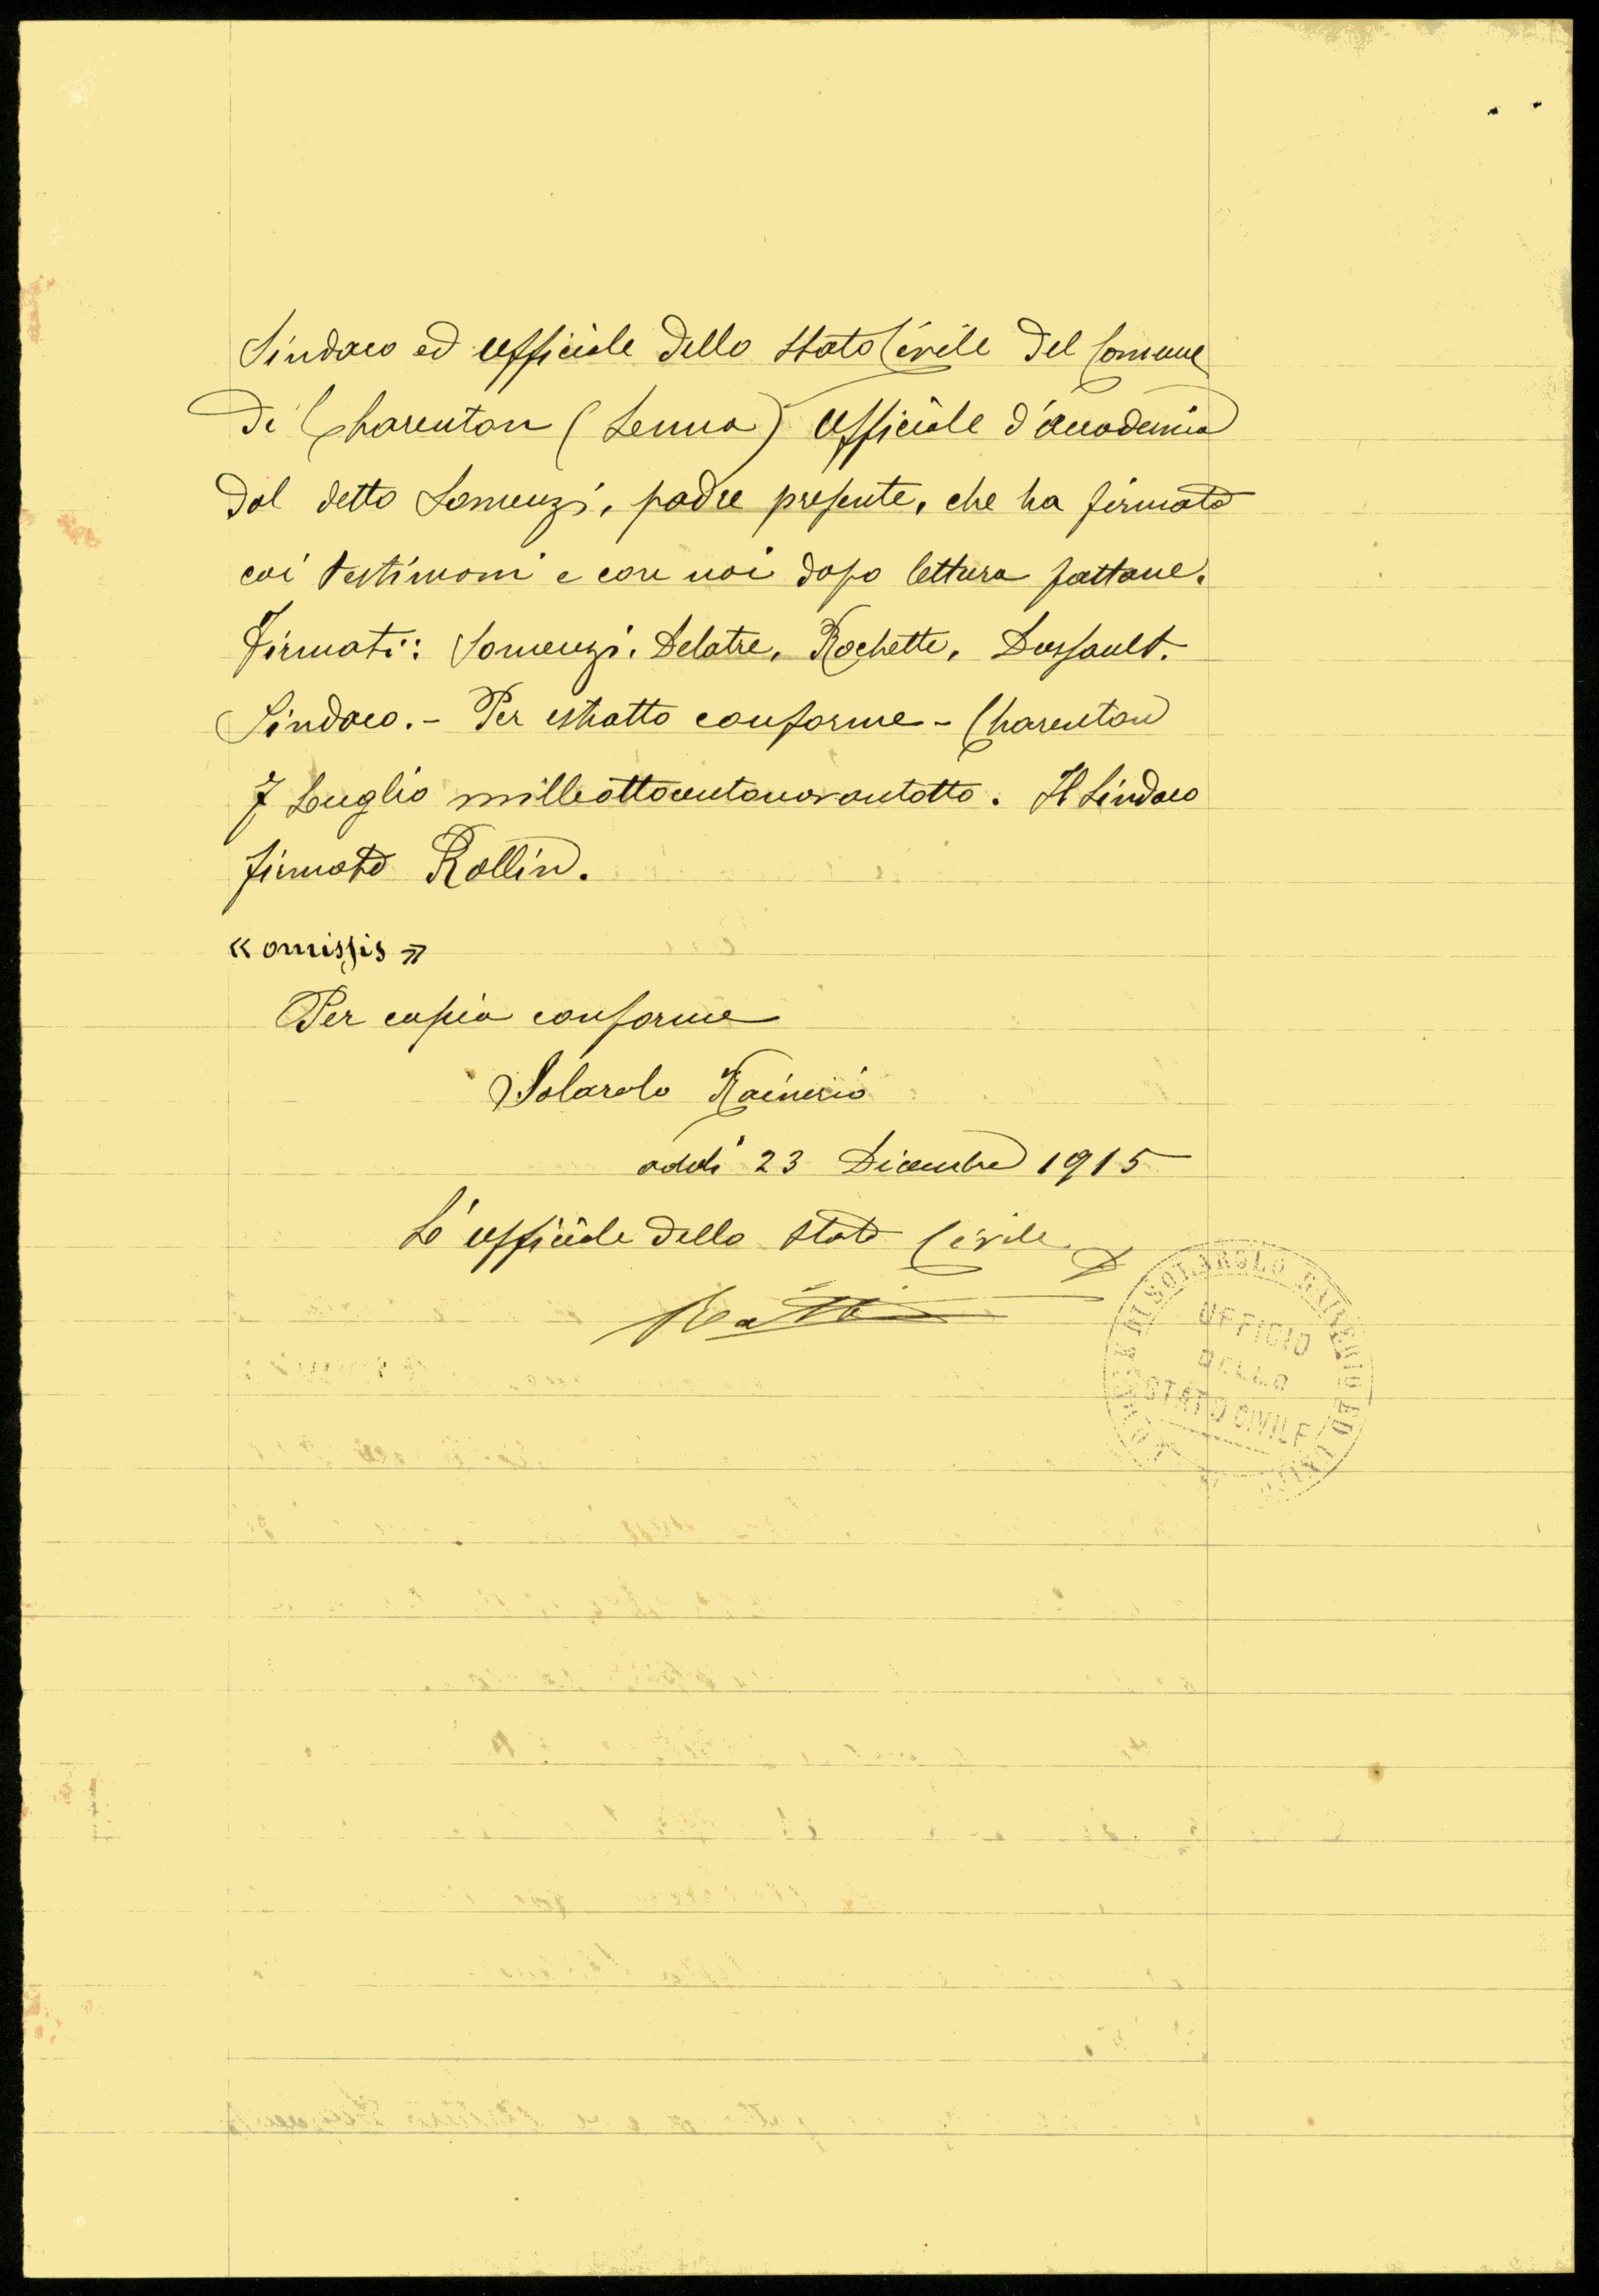 Sindaco ed Ufficiale dello Stato Civile del Comune
di Charenton (Senna) Ufficiale d'accademia
dal detto Somenzi, padre presente, che ha firmato
coi testimoni e con noi dopo lettura fattane.
Firmati: Somenzi. Delatre, Rochette, Dussault.
Sindaco. - Per estratto conforme - Charenton
7 Luglio milleottocentonovantotto. Il Sindaco
firmato Rollin.
« omissis »
Per copia conforme
Solarolo Rainerio
addì 23 Dicembre 1915
L'ufficiale dello Stato Civile
UFFICIO
DELLO
STATO CIVILE
DI SOLAROLO RAINERIO ED UNITI